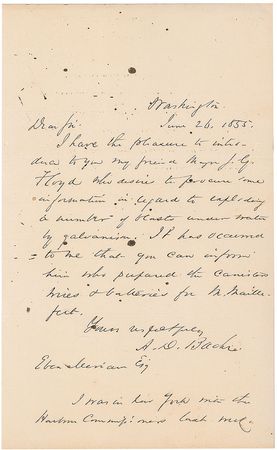 Washington
June 26, 1855.
Dear Sir.
I have the pleasure to intro-
duce to you my friend Major J. G.
Floyd who desires to procure some
information in regard to exploding
a number of blasts under water
by galvanism. It has occurred
to me that you can inform
him who prepared the canisters
wires & batteries for M. Maille-
fert.
Yours respectfully
A. D. Bache
Eben Meriam Esq
I was in New York with the
Harbor Commissioners last week